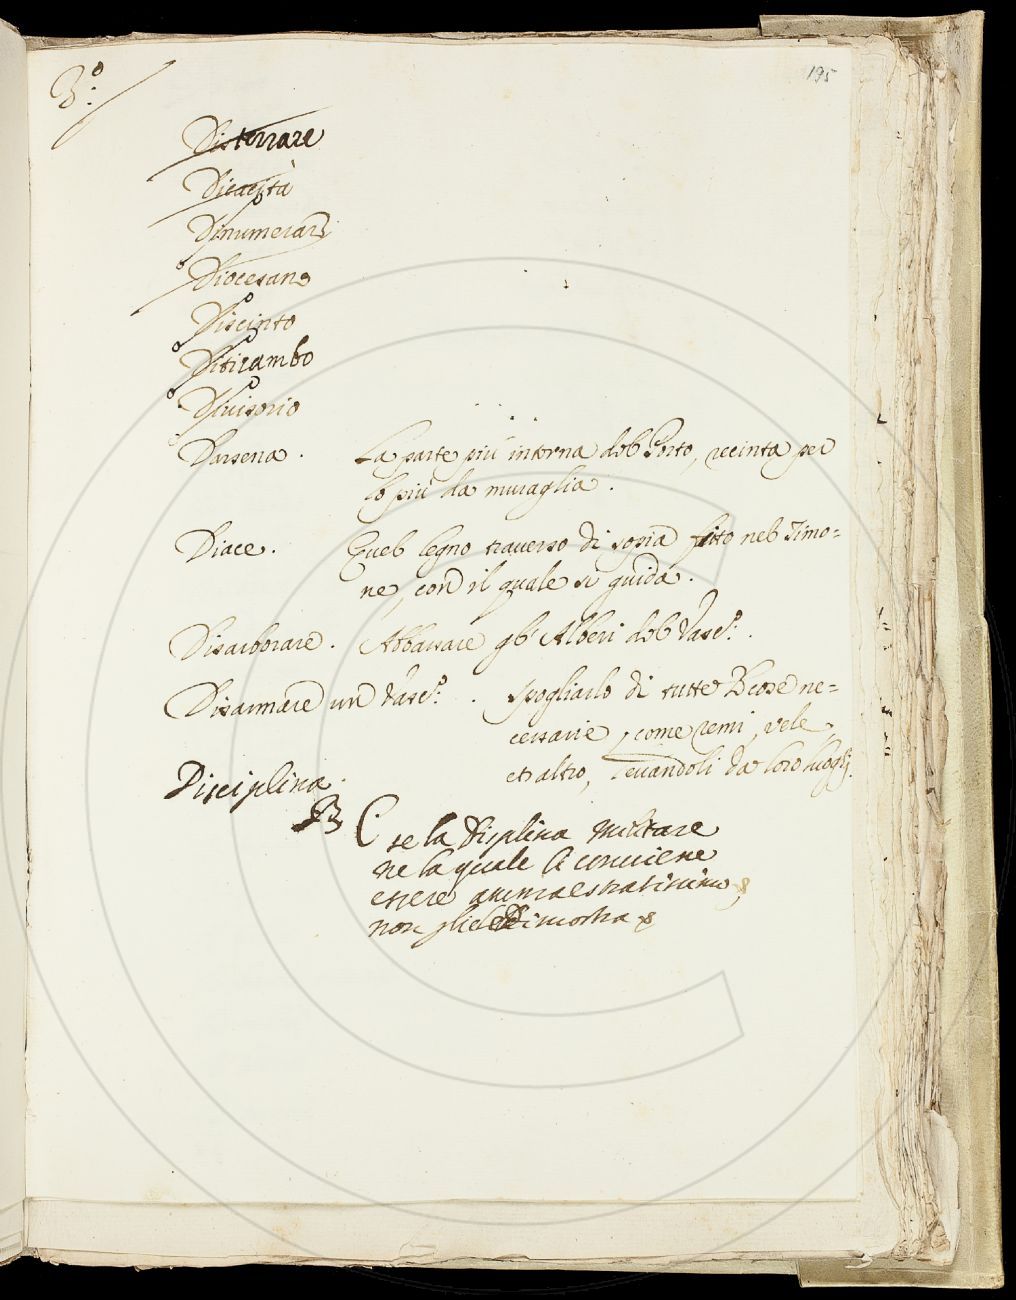 3.°
195
Disterrare
Dicacità
Dinumerare
Diocesano
Discinto
Ditirambo
Divisorio
Darsena. La parte più interna del Porto, recinta per
lo più da muraglia.
Diace. Quel legno traverso di sopra fitto nel Timo=
ne, con il quale si guida.
Disarborare. Abbassare gl' Alberi del Vasc.°.
Disarmare un Vasc.°. Spogliarlo di tutte le cose ne=
cessarie, come remi, vele,
et altro, levandoli da loro luoghi.
Disciplina.
C.
se la Displina militare
ne la quale le conviene
essere ammaestratissimo,
non dimostra